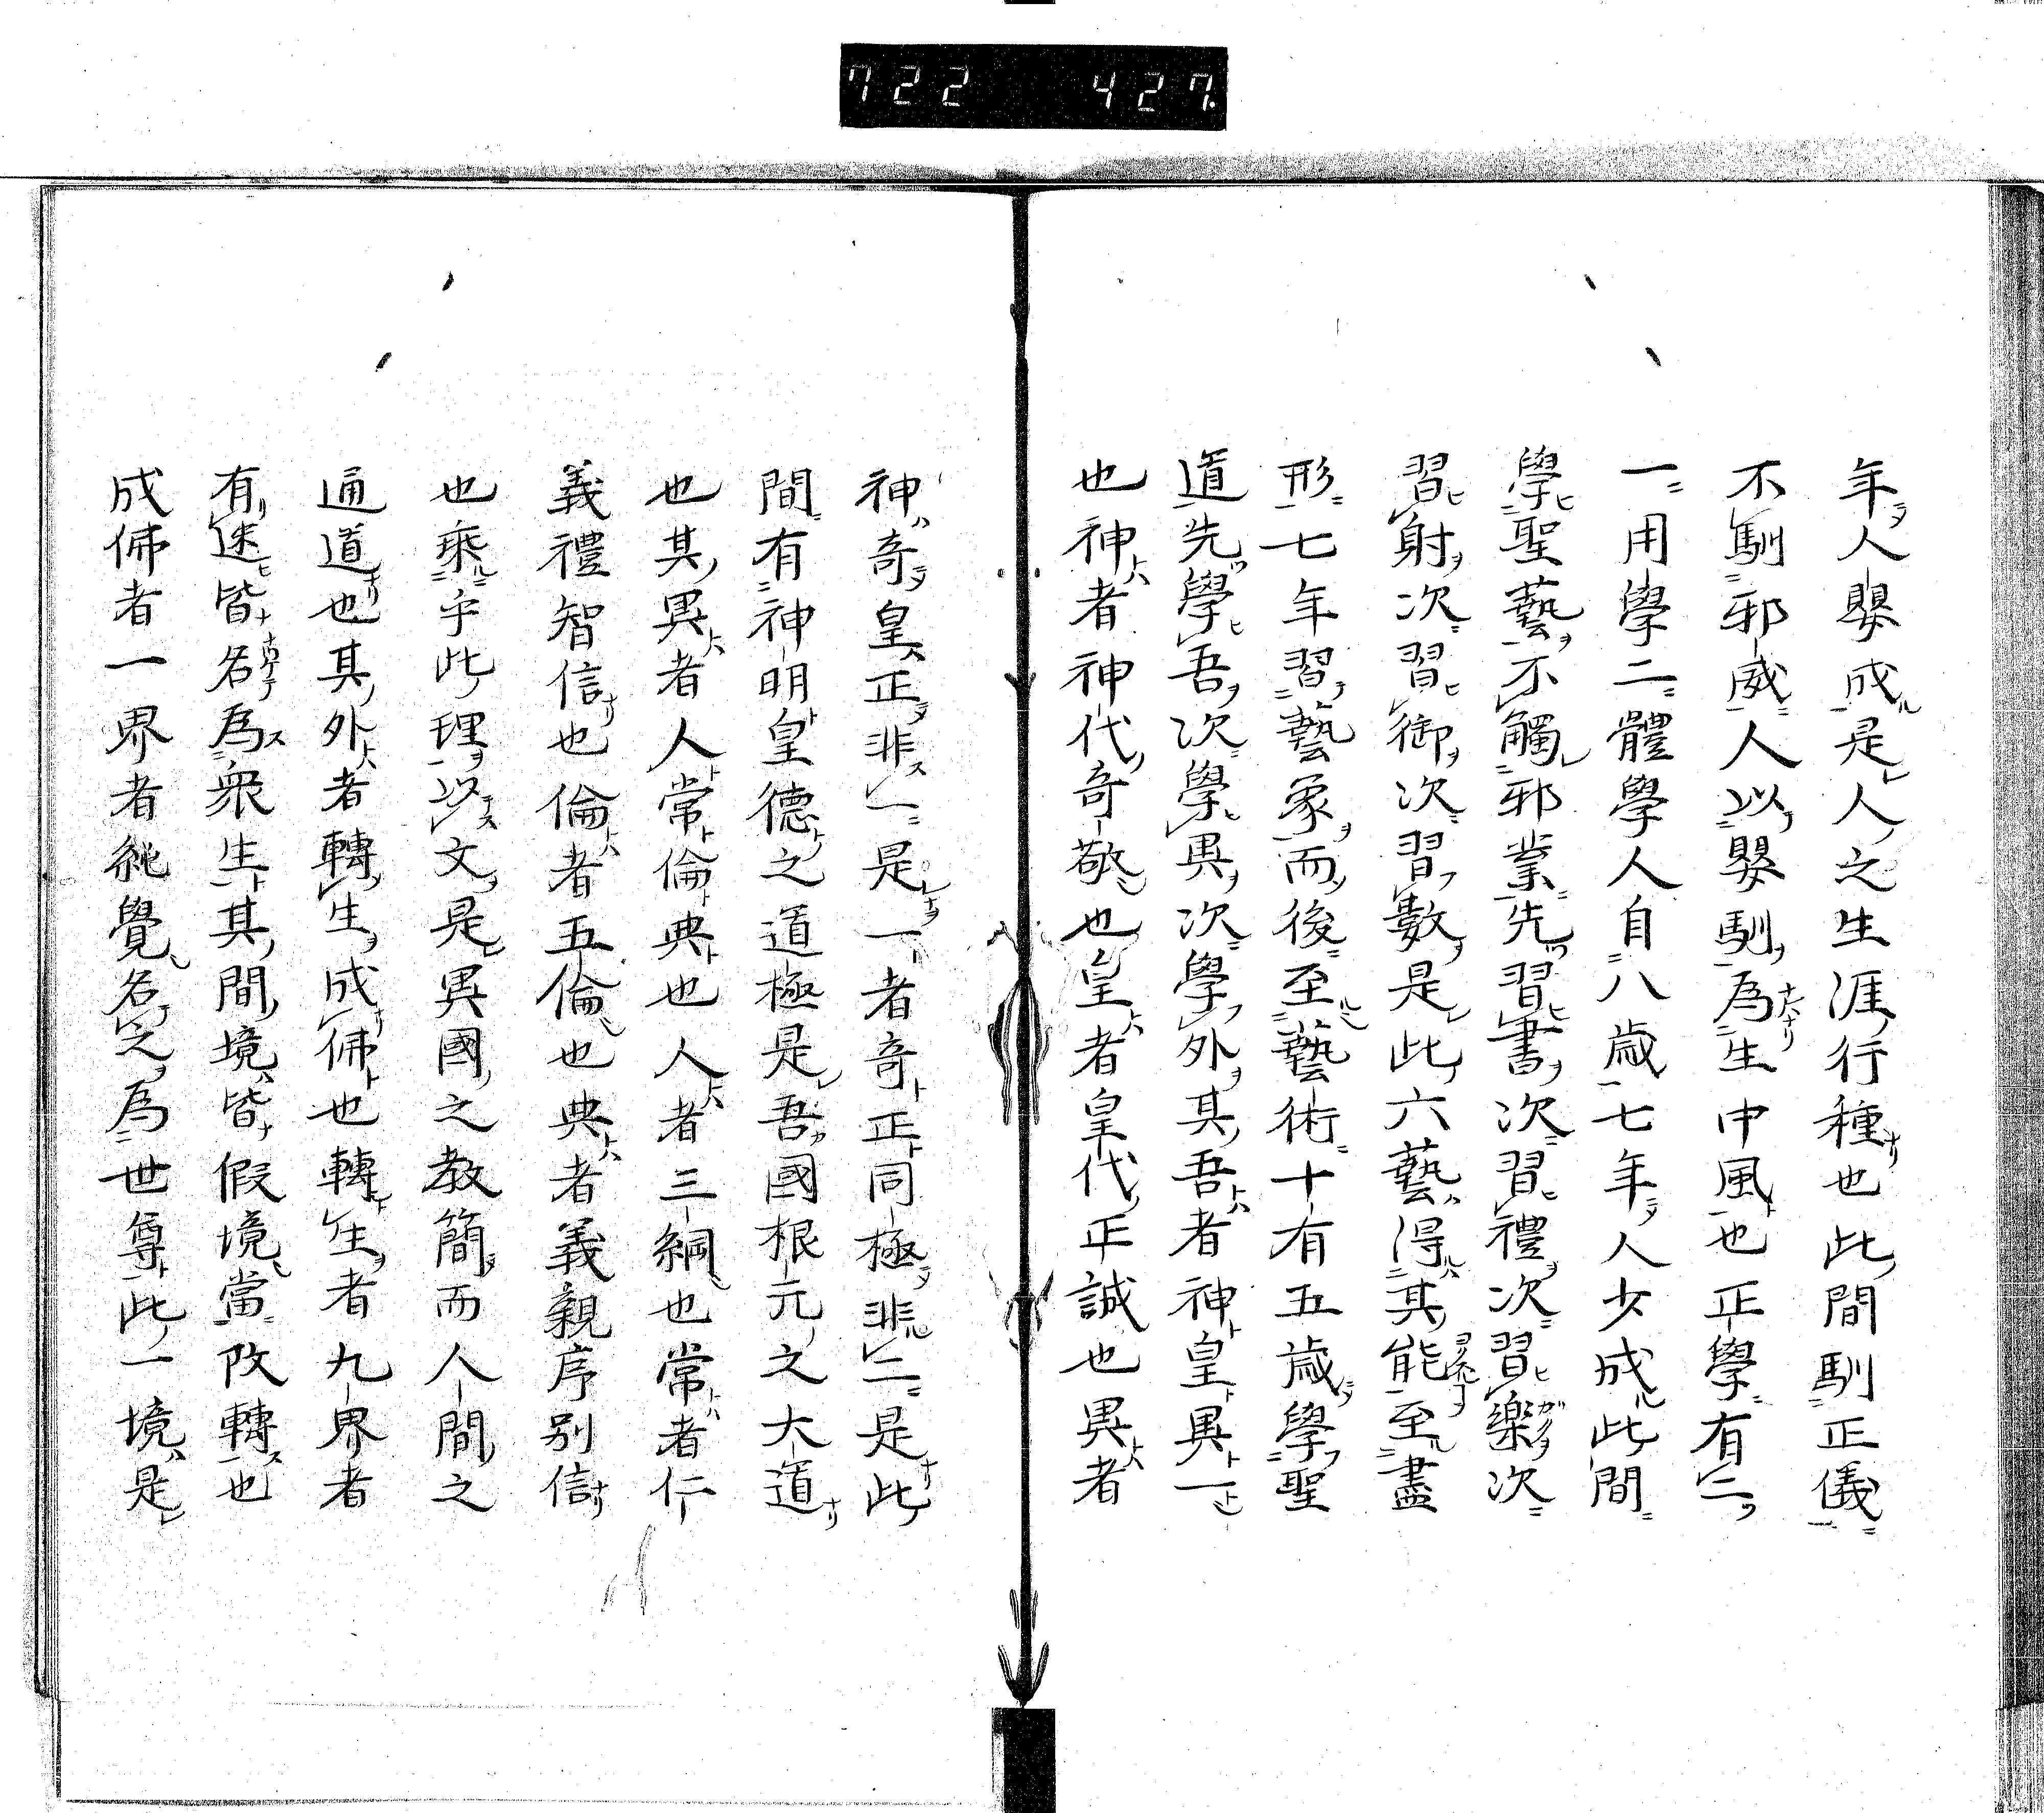 722 427.
年人嬰成是人之生涯行種也此間馴正儀
不馴邪威人以嬰馴為生中風也正學有二
一用學二體學人自八歳七年人少成此間
學聖藝不觸邪業先習書次習禮次習樂次
習射次習御次習數是此六藝得其能至盡
形七年習藝象而後至藝術十有五歳學聖
道先學吾次學異次學外其吾者神皇異一
也神者神代奇敬也皇者皇代正誠也異者
神奇皇正非一是一者奇正同極非二是此
間有神明皇德之道極是吾國根元之大道
也其異者人常倫典也人者三綱也常者仁
義禮智信也倫者五倫也典者義親序別信
也乘宇此理以文是異國之教簡而人間之
通道也其外者轉生成佛也轉生者九界者
有迷皆名為衆生其間境皆假境當改轉也
成佛者一界者純覺名之為世尊此一境是